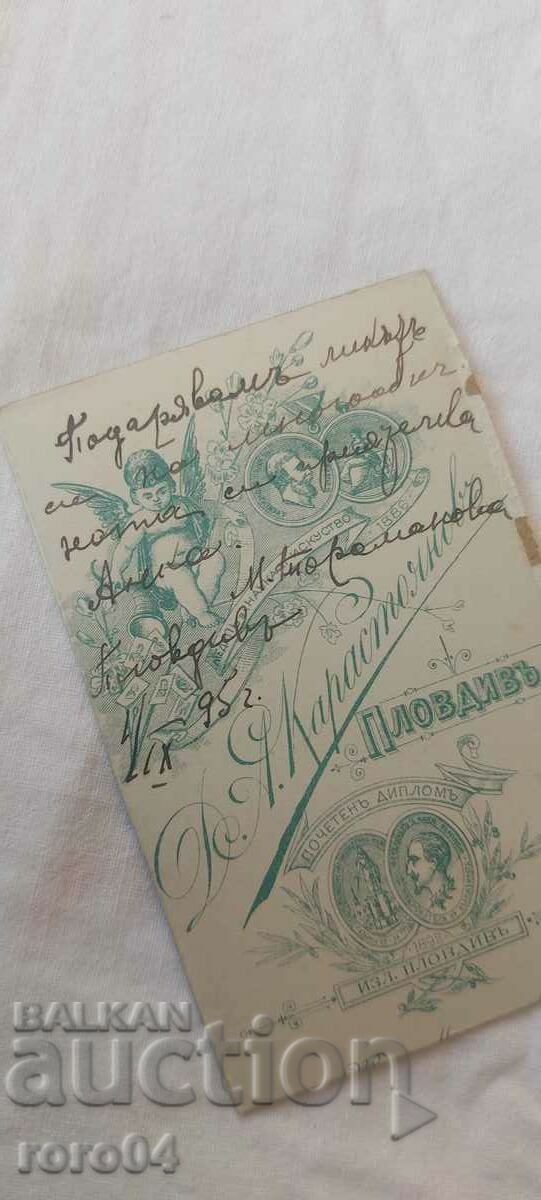 Подарявамъ ликътъ
си на многообич.
ната си приятелка
Анка.
М. Тораманова
Пловдивъ
IX 95 г.
ИСКУСТВО
1886
Д. А. Карастояновъ
ПЛОВДИВЪ
ПОЧЕТЕНЪ ДИПЛОМЪ
1892
ИЗЛ. ПЛОВДИВЪ
BALKAN
auction
roro04